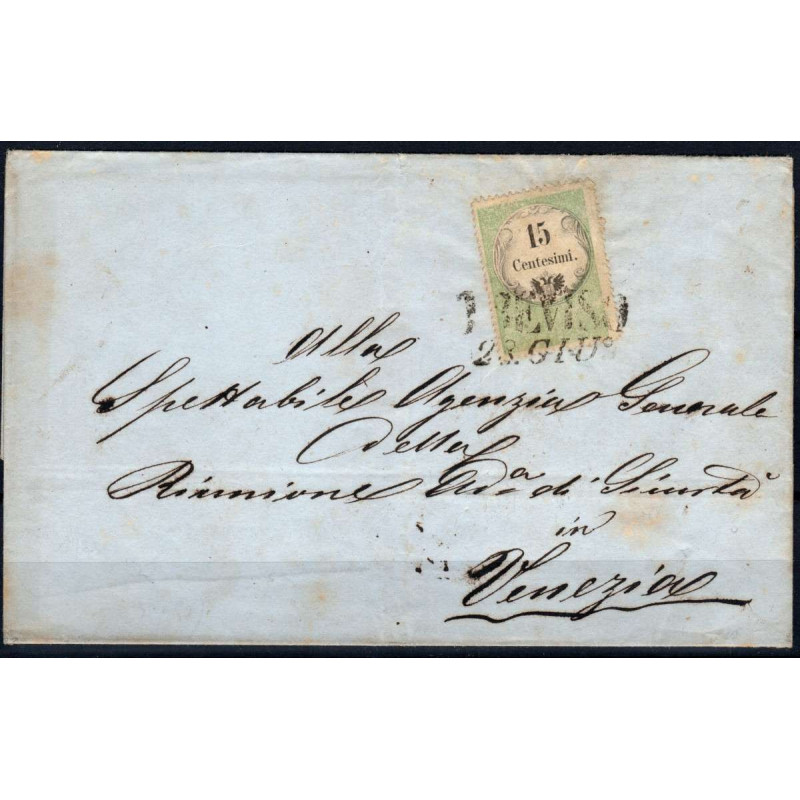 15
Centesimi.
TREVISO
23. GIU.
Alla
Spettabile Agenzia Generale
della
Riunione Ad.a di Sicurtà
in
Venezia